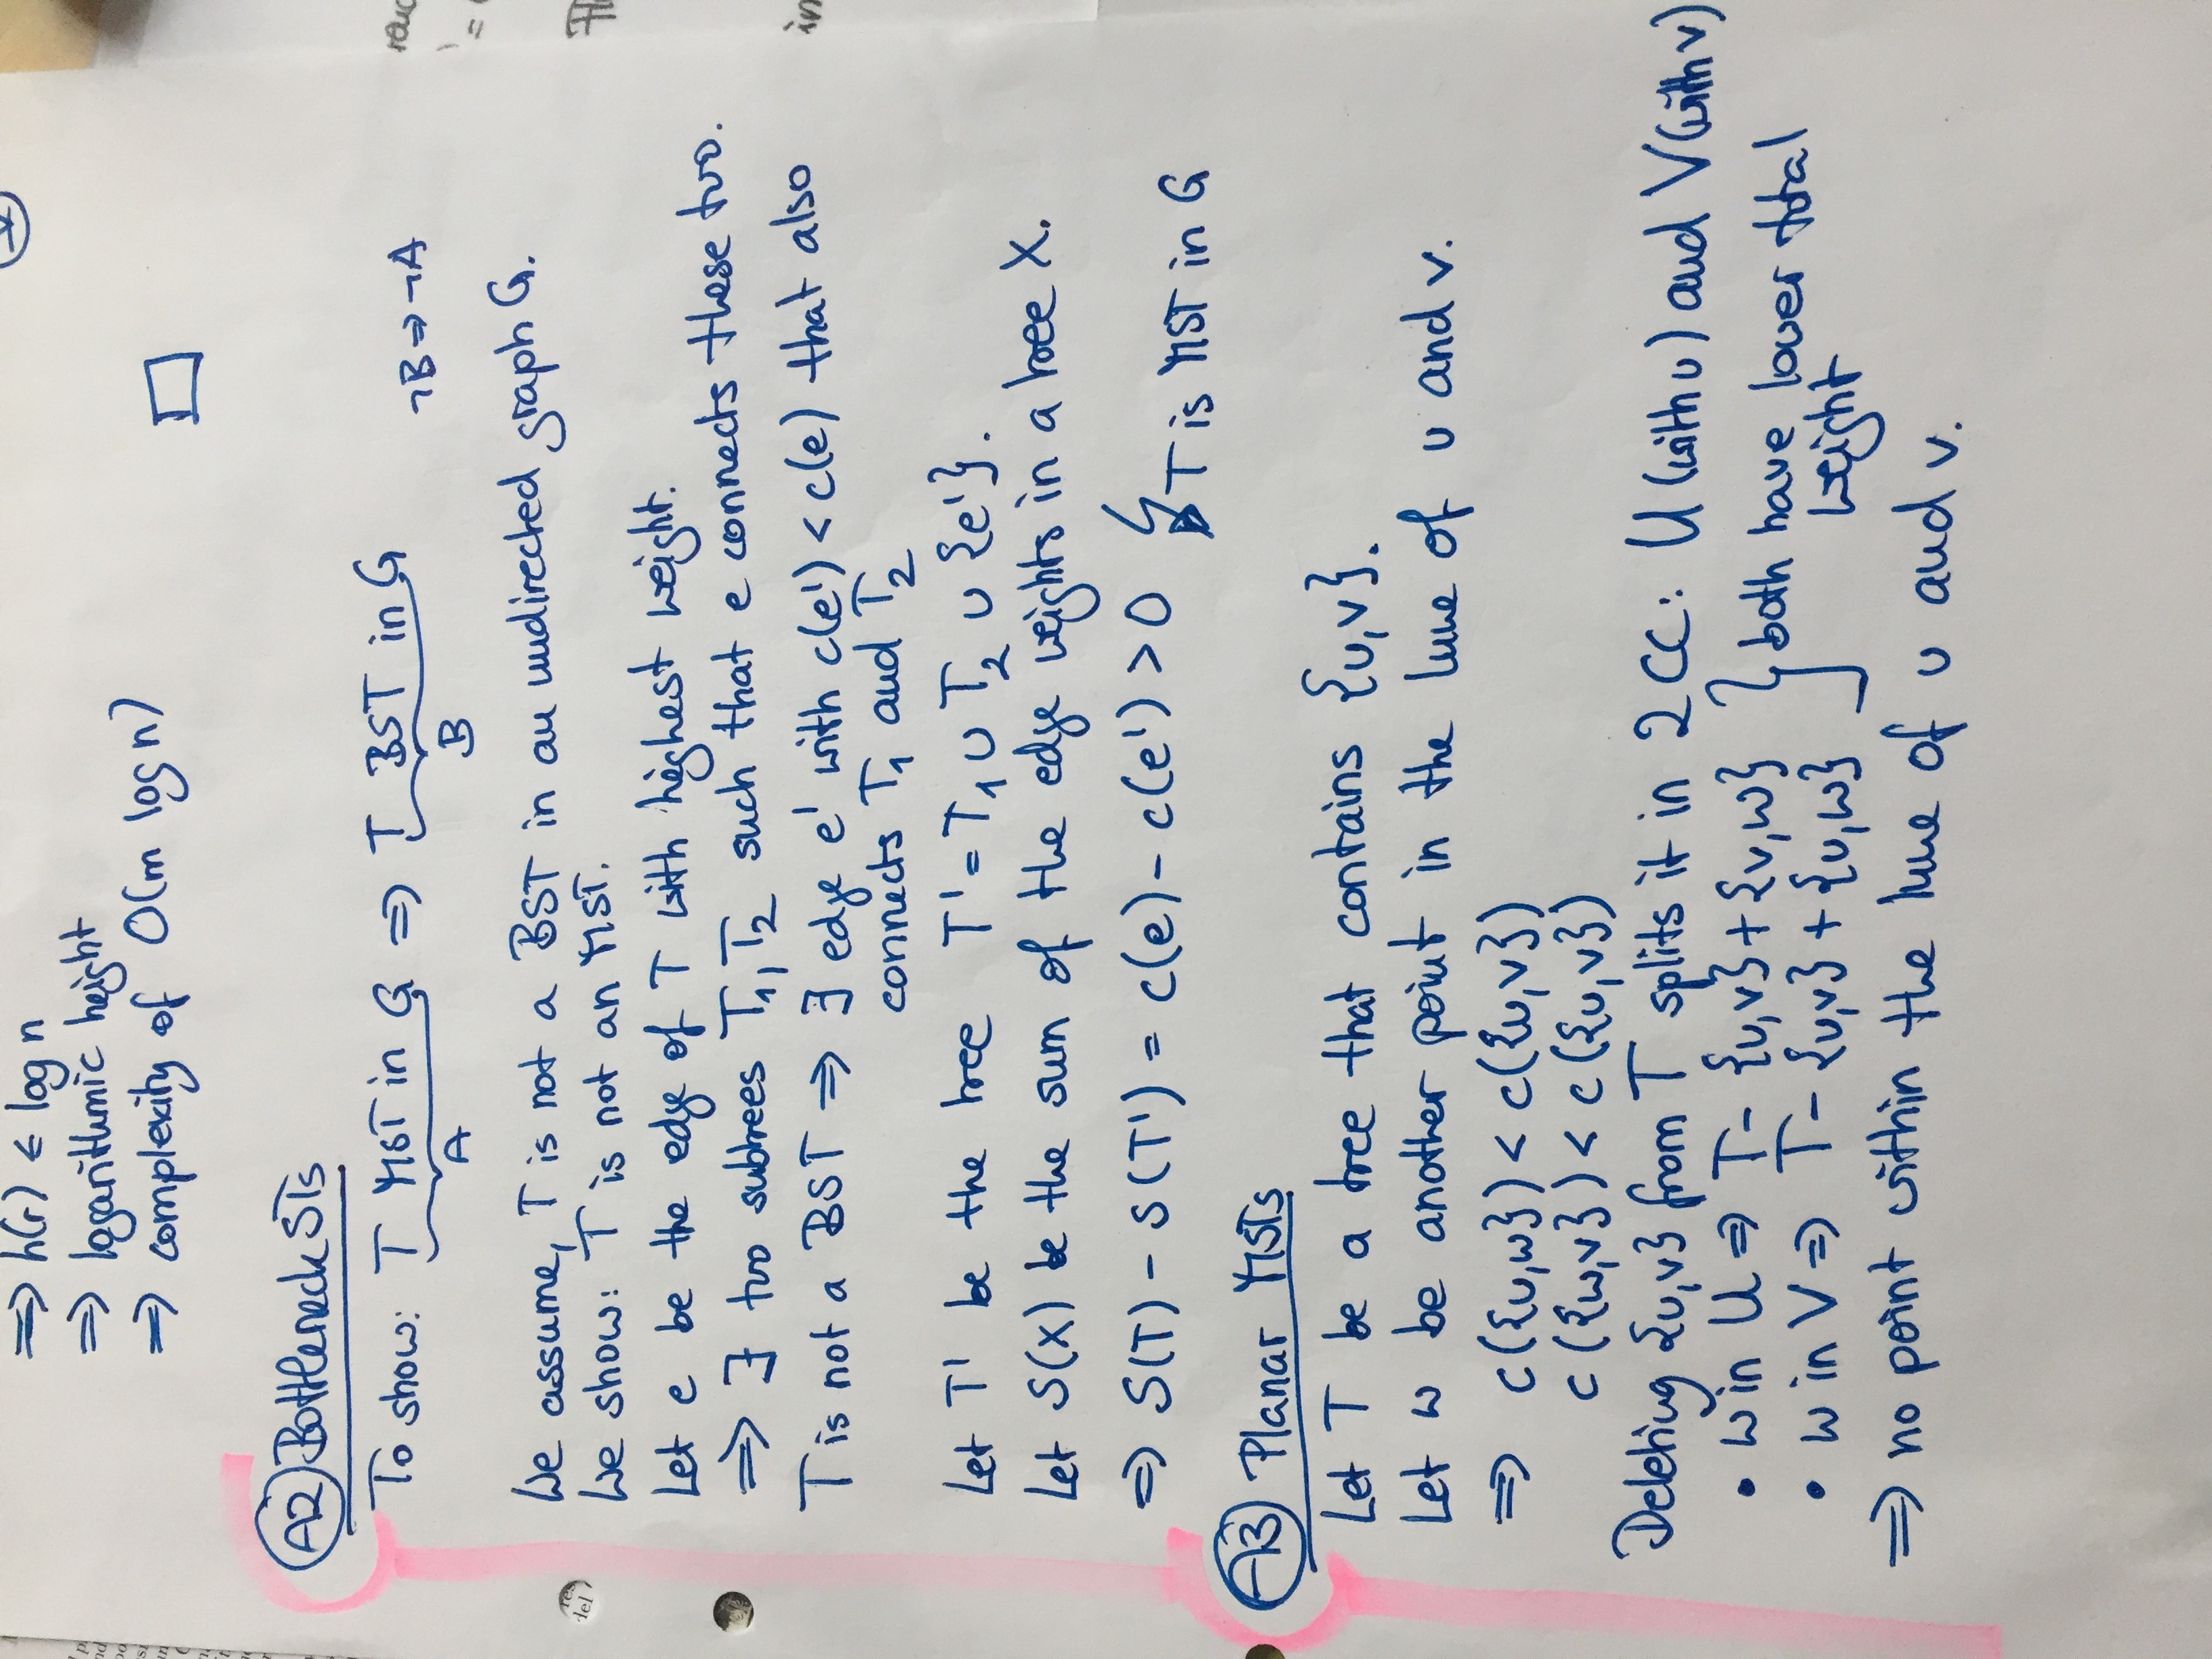 ⇒ h(r) ≤ log n
⇒ logarithmic height
⇒ complexity of O(m log n) □
A2 Bottleneck STs
To show: T MST in G ⇒ T BST in G ¬B ⇒ ¬A
A B
We assume, T is not a BST in an undirected graph G.
We show: T is not an MST.
Let e be the edge of T with highest weight.
⇒ ∃ two subtrees T₁, T₂ such that e connects these two.
T is not a BST ⇒ ∃ edge e' with c(e') < c(e) that also
connects T₁ and T₂
Let T' be the tree T' = T₁ ∪ T₂ ∪ {e'}.
Let S(X) be the sum of the edge weights in a tree X.
⇒ S(T) - S(T') = c(e) - c(e') > 0 ↯ T is MST in G
A3 Planar MSTs
Let T be a tree that contains {u,v}.
Let w be another point in the lune of u and v.
⇒ c({u,w}) < c({u,v})
c({w,v}) < c({u,v})
Deleting {u,v} from T splits it in 2 CC: U (with u) and V (with v)
• w in U ⇒ T - {u,v} + {v,w} } both have lower total
• w in V ⇒ T - {u,v} + {u,w} weight
⇒ no point within the lune of u and v.